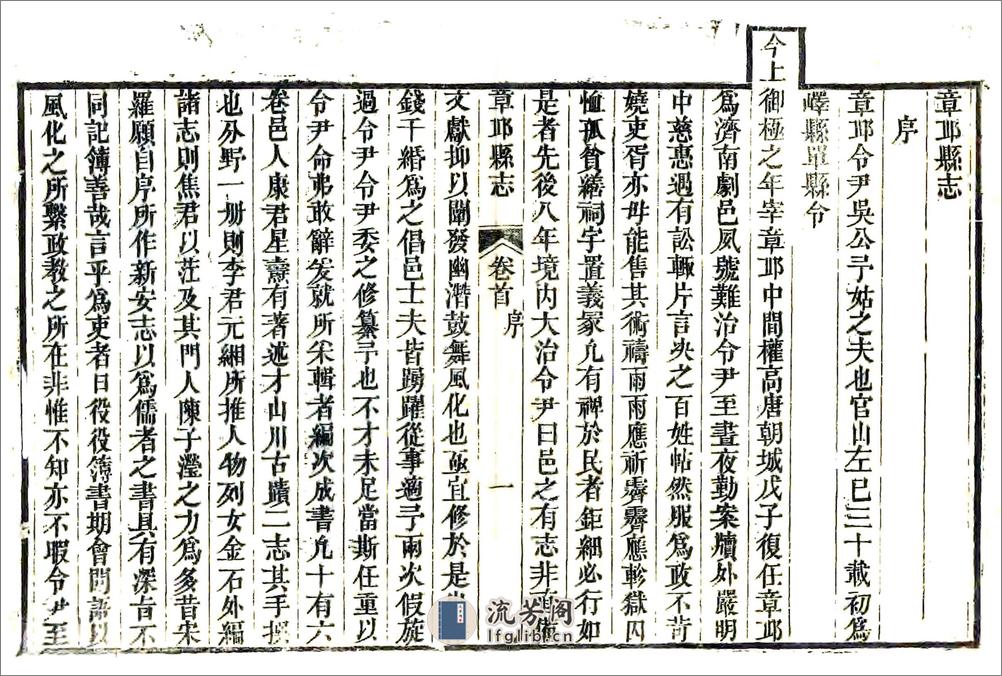 章邱縣志
序
章邱令尹吳公予姑之夫也官山左已三十載初為
嶧縣單縣令
今上御極之年宰章邱中間權高唐朝城戊子復任章邱
為濟南劇邑夙號難治令尹至晝夜勤案牘外嚴明
中慈惠遇有訟輒片言決之百姓帖然服為政不苛
嬈吏胥亦毋能售其術禱雨雨應祈霽霽應軫獄囚
恤孤貧繕祠宇置義冢凡有裨於民者鉅細必行如
是者先後八年境內大治令尹曰邑之有志非直備
章邱縣志 卷首 序 一
文獻抑以闡發幽潛鼓舞風化也亟宜修於是出
錢千緡為之倡邑士夫皆踴躍從事適予兩次假旋
過令尹令尹委之修纂予也不才未足當斯任重以
令尹命弗敢辭爰就所采輯者編次成書凡十有六
卷邑人康君星燾有著述才山川古蹟二志其手撰
也分野一冊則李君元緗所推人物列女金石外編
諸志則焦君以茳及其門人陳子瀅之力為多昔宋
羅願自序所作新安志以為儒者之書具有深旨不
同記簿善哉言乎為吏者日役役簿書期會間語以
風化之所繫政教之所在非惟不知亦不暇令尹至
流芳阁
lfglib.cn